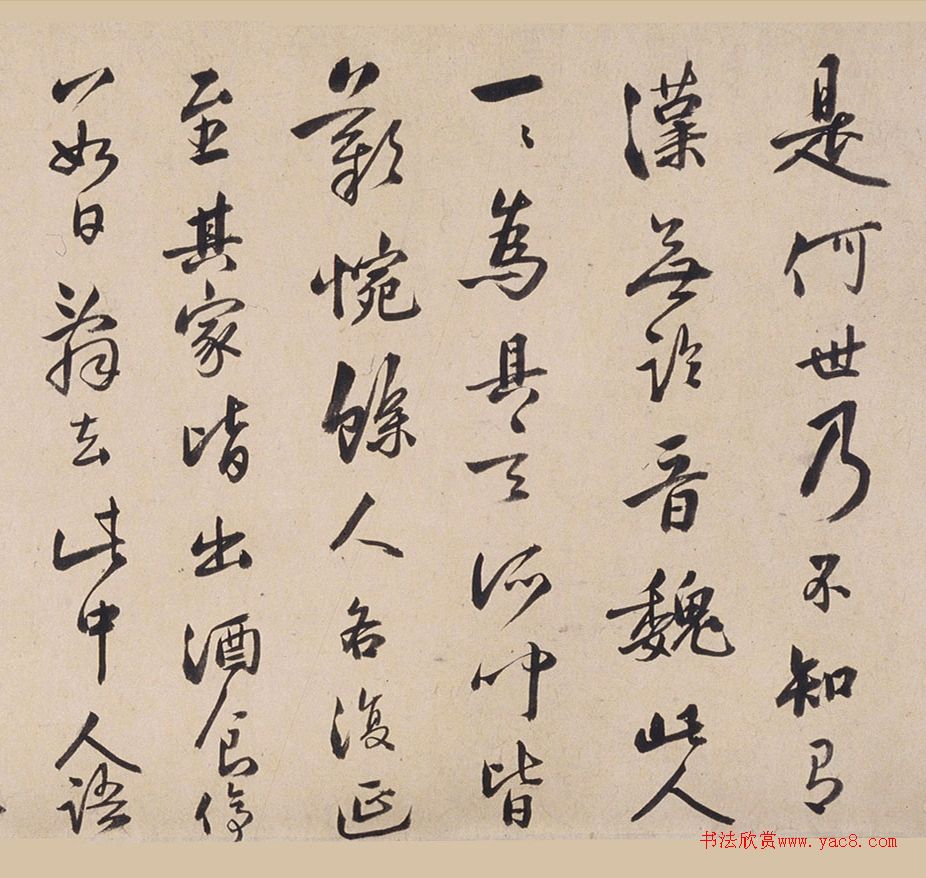 是何世乃不知有
漢無論晉魏此人
一〻為具言所聞皆
歎惋餘人各復延
至其家皆出酒食停
數日辭去此中人語
书法欣赏www.yac8.com